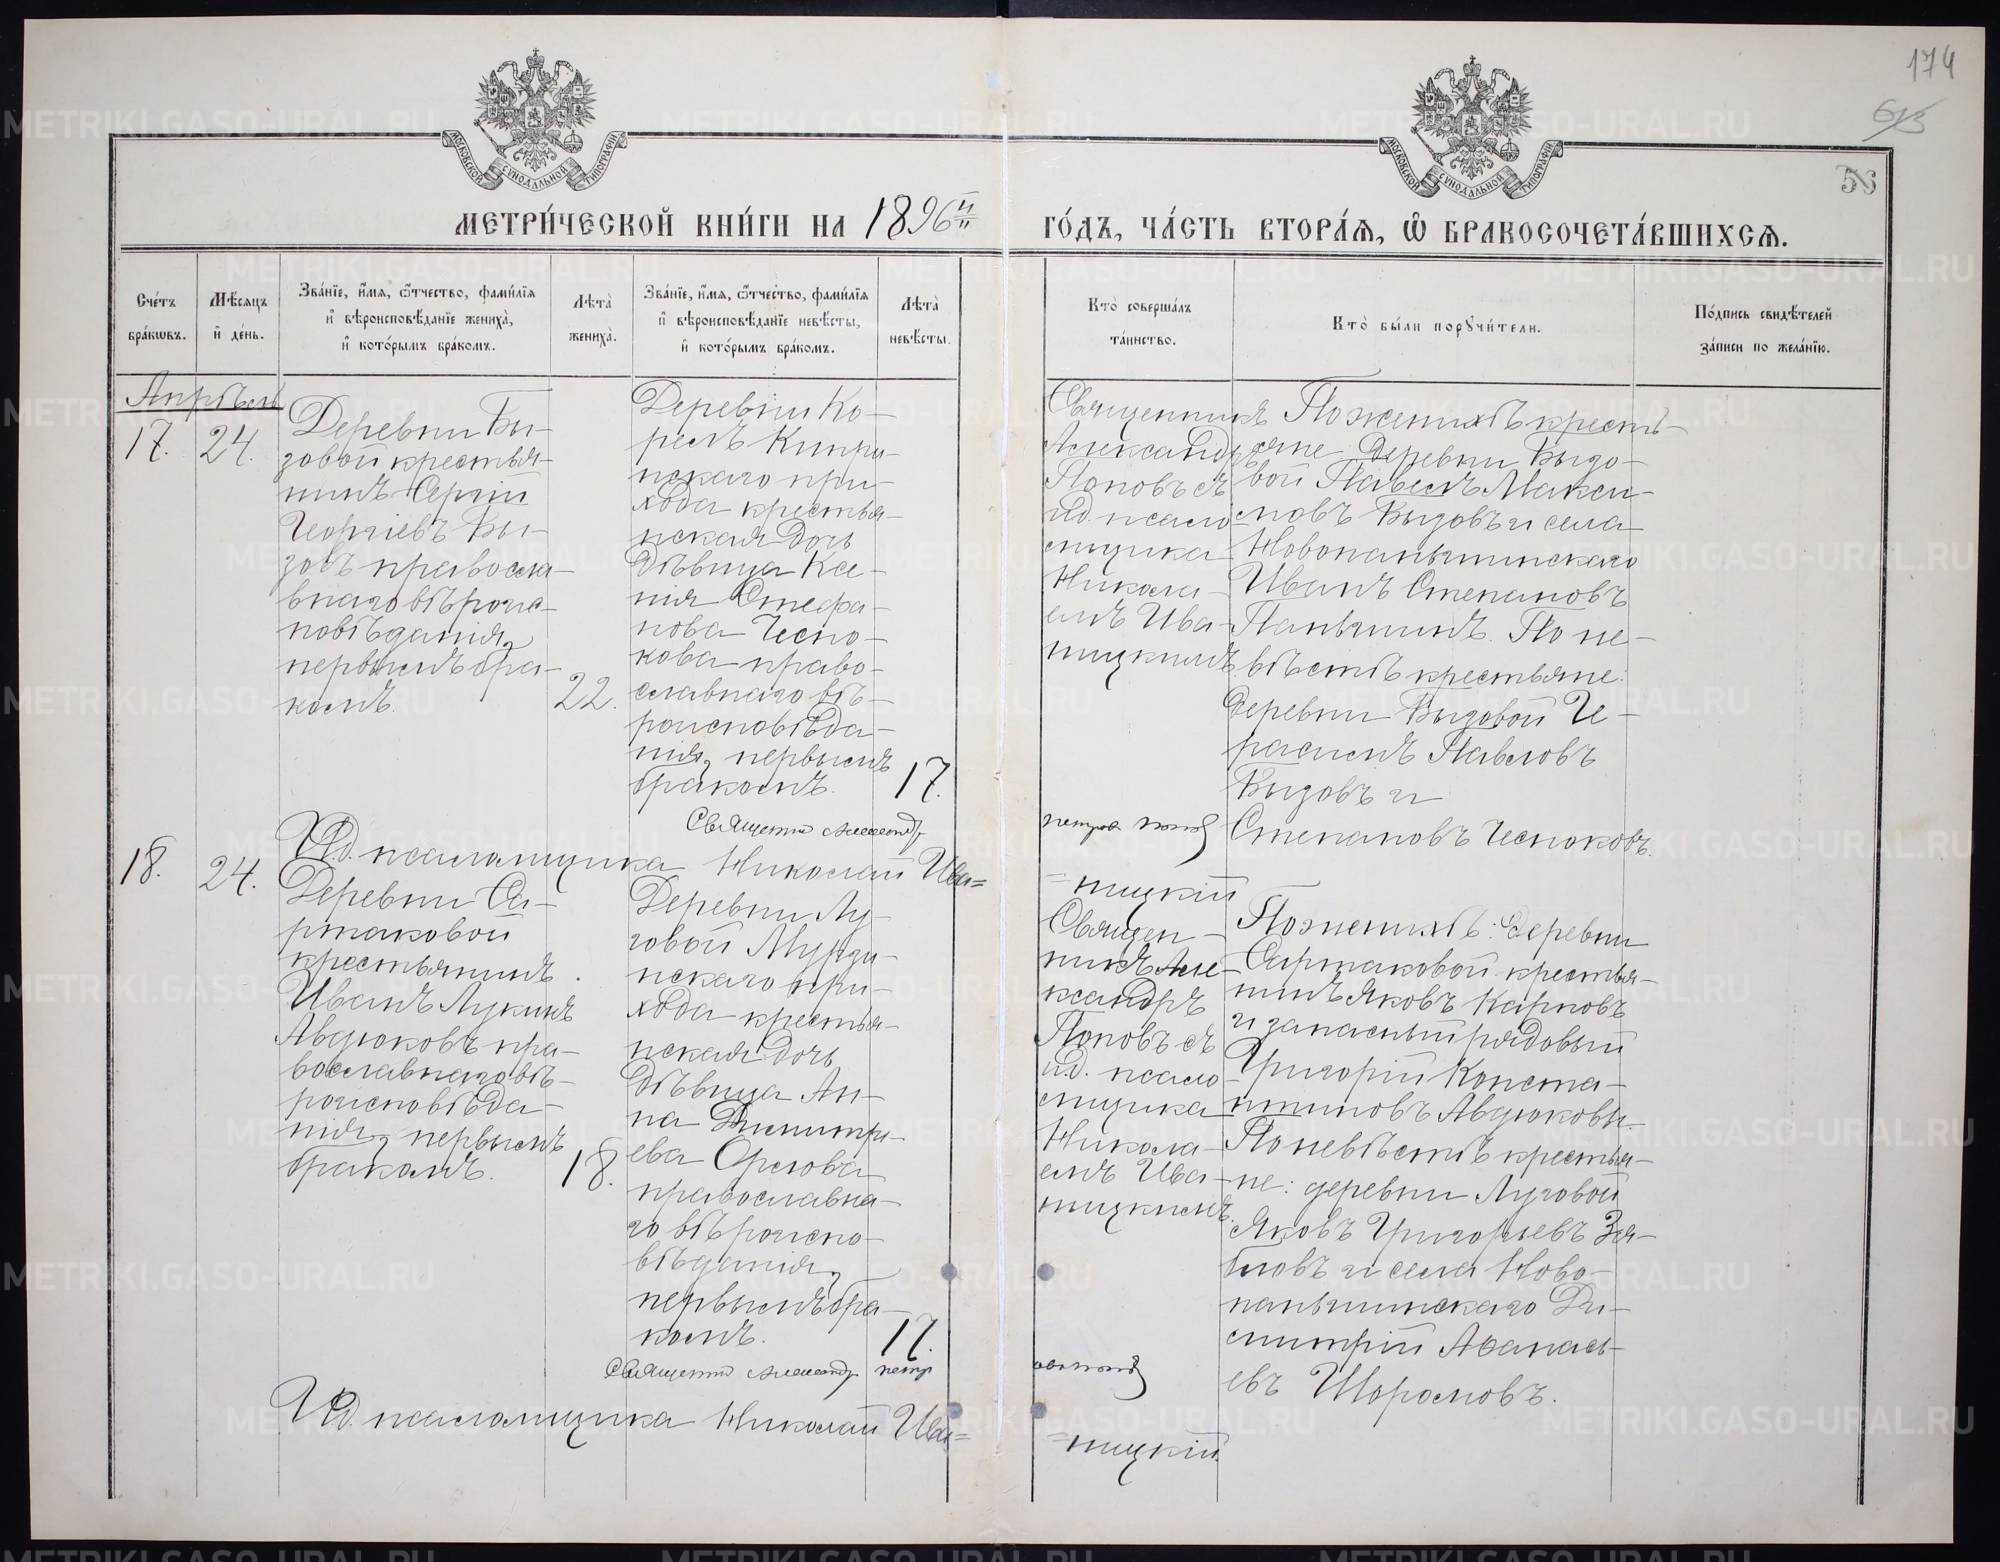 174
МОСКОВСКОЙ СУНОДАЛЬНОЙ ТИПОГРАФІИ
МОСКОВСКОЙ СУНОДАЛЬНОЙ ТИПОГРАФІИ
МЕТРИ́ЧЕСКОЙ КНИ́ГИ НА 1896й
ГО́ДЪ, ЧА́СТЬ ВТОРА́Ѧ, Ѽ БРАКОСОЧЕТА́ВШИХСѦ.
Счетъ браковъ.
Мѣсяцъ и день.
Званіе, имя, отчество, фамилія и вѣроисповѣданіе жениха, и которымъ бракомъ.
Лѣта жениха.
Званіе, имя, отчество, фамилія и вѣроисповѣданіе невѣсты, и которымъ бракомъ.
Лѣта невѣсты.
Кто совершалъ таинство.
Кто были поручители.
Подпись свидѣтелей записи по желанію.
Апрѣль
17.
24.
Деревни Бы-
зовой крестья-
нинъ Сергій
Георгіевъ Бы-
зовъ православ-
наго вѣроис-
повѣданія,
первымъ бра-
комъ.
22.
Деревни Ко-
релъ Кипри-
нскаго при-
хода крестья-
нская дочь
дѣвица Ксе-
нія Стефа-
нова Чесно-
кова право-
славнаго вѣ-
роисповѣда-
нія, первымъ
бракомъ.
17.
Священникъ
Александръ
Поповъ съ
и.д. псало-
мщика
Никола-
емъ Ива-
ницкимъ.
По женихѣ кресть-
яне деревни Бызо-
вой Павелъ Макси-
мовъ Бызовъ и села
Новопаньшинскаго
Иванъ Степановъ
Паньшинъ. По не-
вѣстѣ крестьяне:
деревни Бызовой Ге-
расимъ Павловъ
Бызовъ и
Степановъ Чесноковъ.
Священник Александр
Петров Попов
И.д. псаломщика Николай Ива=
=ницкій
18.
24.
Деревни Са-
ртаковой
крестьянинъ
Иванъ Лукинъ
Авдюковъ пра-
вославнаго вѣ-
роисповѣда-
нія, первымъ
бракомъ.
18.
Деревни Лу-
говой Мурзи-
нскаго при-
хода крестья-
нская дочь
дѣвица Ан-
на Димитрі-
ева Орлова
православна-
го вѣроиспо-
вѣданія,
первымъ бра-
комъ.
17.
Священ-
никъ Але-
ксандръ
Поповъ съ
и.д. псало-
мщика
Никола-
емъ Ива-
ницкимъ.
По женихѣ: деревни
Сартаковой крестья-
нинъ Яковъ Карповъ
и запасный рядовый
Григорій Конста-
нтиновъ Авдюковы.
По невѣстѣ крестья-
не: деревни Луговой
Яковъ Григорьевъ Зя-
бловъ и села Ново-
паньшинскаго Ди-
митрій Аѳанась-
евъ Шороховъ.
Священник Александр Петр
ов Попов
И.д. псаломщика Николай Ива=
=ницкій.
METRIKI.GASO-URAL.RU